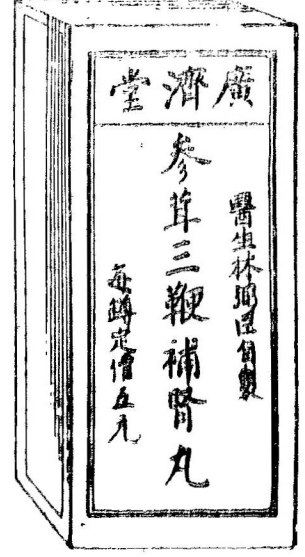 廣濟堂
醫生林弼臣自製
參茸三鞭補腎丸
每罇定價五元